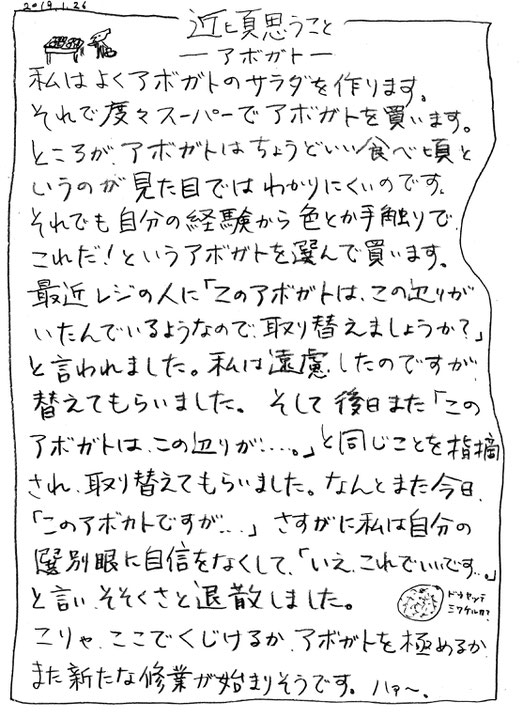 2019.1.26
近頃思うこと
ーアボガトー
私はよくアボガトのサラダを作ります。
それで度々スーパーでアボガトを買います。
ところが、アボガトはちょうどいい食べ頃と
いうのが見た目ではわかりにくいのです。
それでも自分の経験から色とか手触りで、
これだ！というアボガトを選んで買います。
最近レジの人に「このアボガトは、この辺りが
いたんでいるようなので、取り替えましょうか？」
と言われました。私は遠慮したのですが、
替えてもらいました。そして後日また「この
アボガトは、この辺りが・・・。」と同じことを指摘
され、取り替えてもらいました。なんとまた今日、
「このアボカトですが・・・」さすがに私は自分の
選別眼に自信をなくして、「いえ、これでいいです・・。」
と言い、そそくさと退散しました。
ドウヤッテ
ミワケルカ？
こりゃ、ここでくじけるか、アボガトを極めるか、
また新たな修業が始まりそうです。ハァ〜。